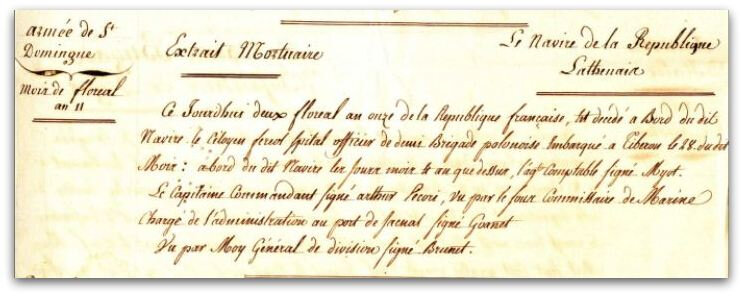 armée de St
Domingue
Mois de floreal
an 11
Extrait Mortuaire
Le Navire de la Republique
Lathenais
Ce Jourdhui deux floreal an onze de la Republique française, Est decedé a Bord du dit
Navire le Citoyen officier de demi Brigade polonoise Embarqué a Tiberon le 28 du dit
Mois: abord du dit Navire les Jours mois & an que dessus, l'agt Comptable signé Myot.
Le Capitaine Commandant signé arthur, vu par le sous Committaire de Marine
Chargé de l'administration au port de signé
Vu par Moy Général de division signé Brunet.